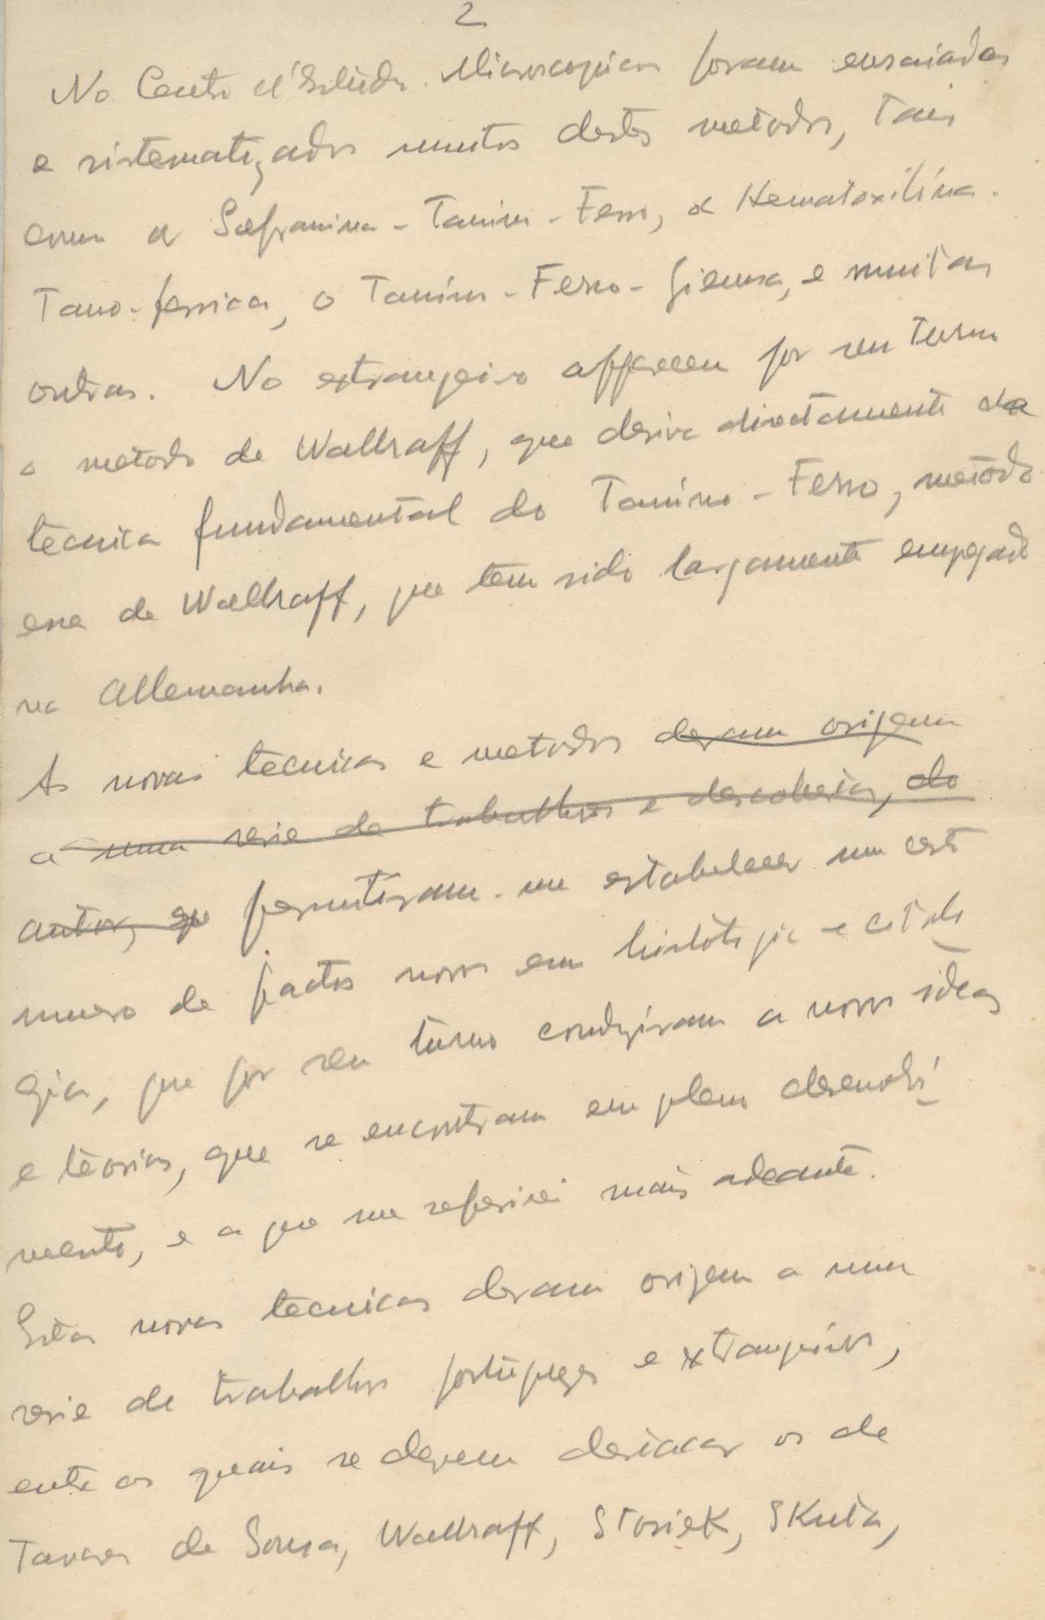 2
No Centro d'Estudos Microscopicos foram ensaiados
e sistematizados muitos destes metodos, tais
como a Safranina-Tanino-Ferro, a Hematoxilina-
Tano-ferrica, o Tanino-Ferro-Giemsa, e muitas
outras. No estrangeiro appareceu por seu turno
o metodo de Wallraff, que deriva directamente da
tecnica fundamental do Tanino-Ferro, metodo
esse de Wallraff, que tem sido largamente empregado
na Allemanha.
As novas tecnicas e metodos deram origem
a uma serie de trabalhos e descobertas, do
autor, que permitiram-me estabelecer um certo
numero de factos novos em histologia e citolo
gia, que por seu turno conduziram a novas ideas
e teorias, que se encontram em pleno desenvolvi
mento, e a que me referirei mais adeante.
Estas novas tecnicas deram origem a uma
serie de trabalhos portuguezes e extrangeiros,
entre os quais se devem destacar os de
Tavares de Sousa, Wallraff, Stosiek, Skuta,